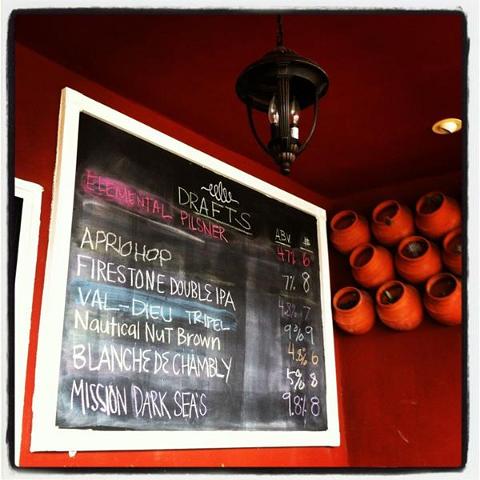 DRAFTS
ABV #
ELEMENTAL PILSNER 4.7% 6
APRIOHOP 7% 8
FIRESTONE DOUBLE IPA
VAL-DIEU TRIPEL 9% 9
Nautical Nut Brown 6
BLANCHE DE CHAMBLY 5% 8
MISSION DARK SEA'S 9.8% 8